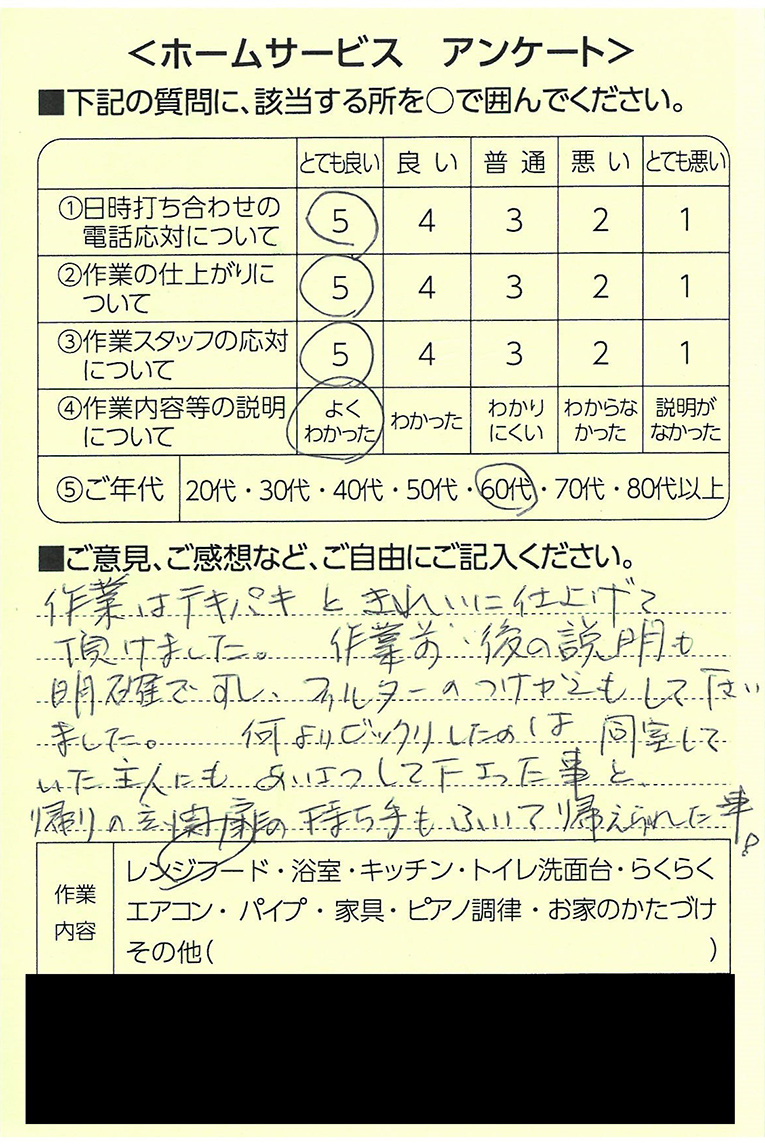 ＜ホームサービス　アンケート＞
■下記の質問に、該当する所を○で囲んでください。
とても良い 良い 普通 悪い とても悪い
①日時打ち合わせの電話応対について 5 4 3 2 1
②作業の仕上がりについて 5 4 3 2 1
③作業スタッフの応対について 5 4 3 2 1
④作業内容等の説明について よくわかった わかった わかりにくい わからなかった 説明がなかった
⑤ご年代 20代・30代・40代・50代・60代・70代・80代以上
■ご意見、ご感想など、ご自由にご記入ください。
作業はテキパキときれいに仕上げて
頂けました。 作業前・後の説明も
明確ですし、フィルターのつけかえもして下さい
ました。 何よりビックリしたのは 同室して
いた主人にもあいさつして下さった事と、
帰りの玄関扉の持ち手もふいて帰えられた事。
作業内容
レンジフード・浴室・キッチン・トイレ洗面台・らくらく
エアコン・パイプ・家具・ピアノ調律・お家のかたづけ
その他(　　　)